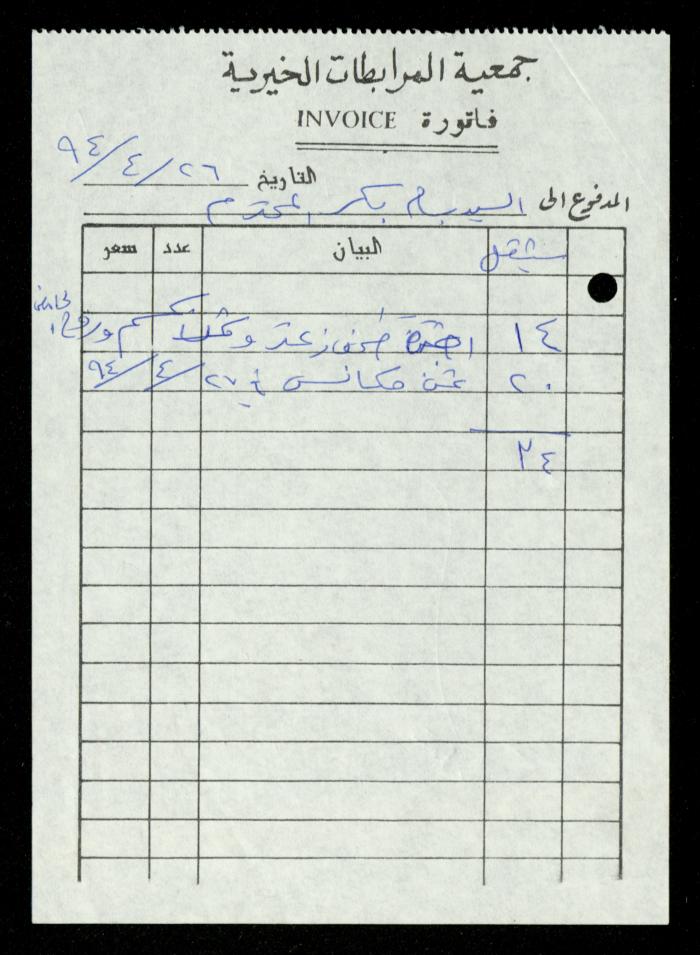 جمعية المرابطات الخيرية
فاتورة INVOICE
التاريخ ٢٦/٤/٩٤
المدفوع الى السيد بكر المحترم
شيقل البيان عدد سعر
١٤ زعتر
٢٠ ثمن مكانس ٢٧/٤/٩٤
٣٤